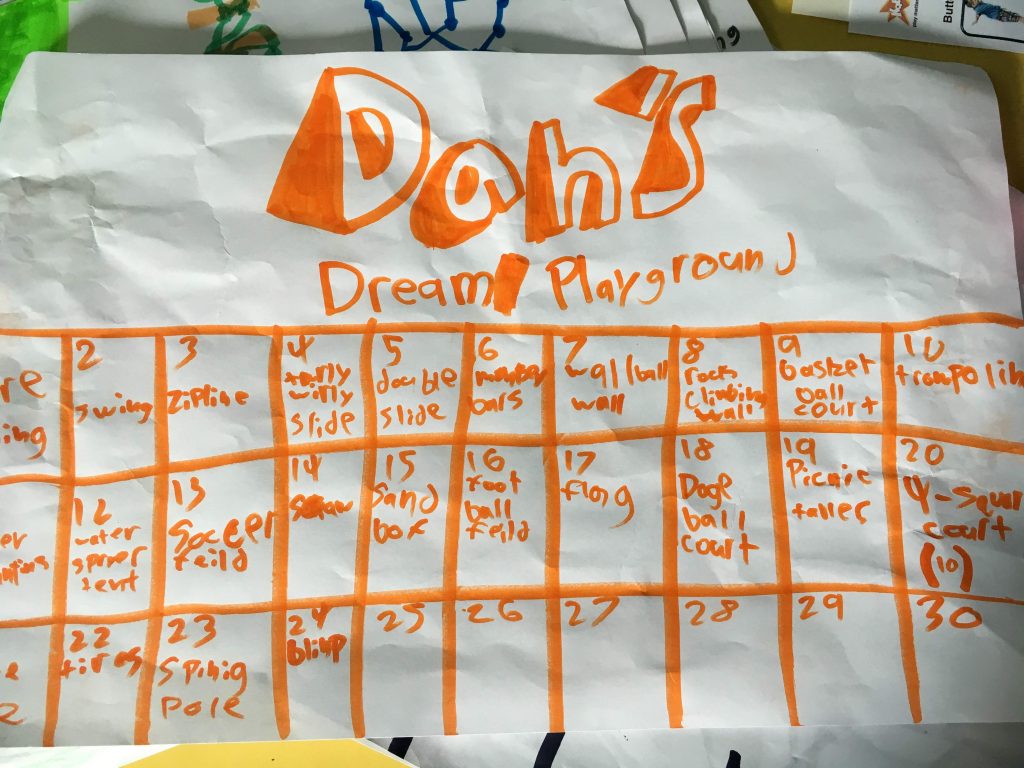 Dan's
Dream Playground
re
ing
2
swing
3
Zipline
4
twirly
wirly
slide
5
double
slide
6
monkey
bars
7
wallball
wall
8
rock
climbing
wall
9
basket
ball
court
10
trampolin
er
12
water
13
Soccer
feild
14
15
Sand
box
16
foot
ball
feild
17
18
Doge
ball
court
19
Picnic
20
4-squar
court
(10)
e
22
tires
23
Spinig
Pole
24
Blimp
25
26
27
28
29
30